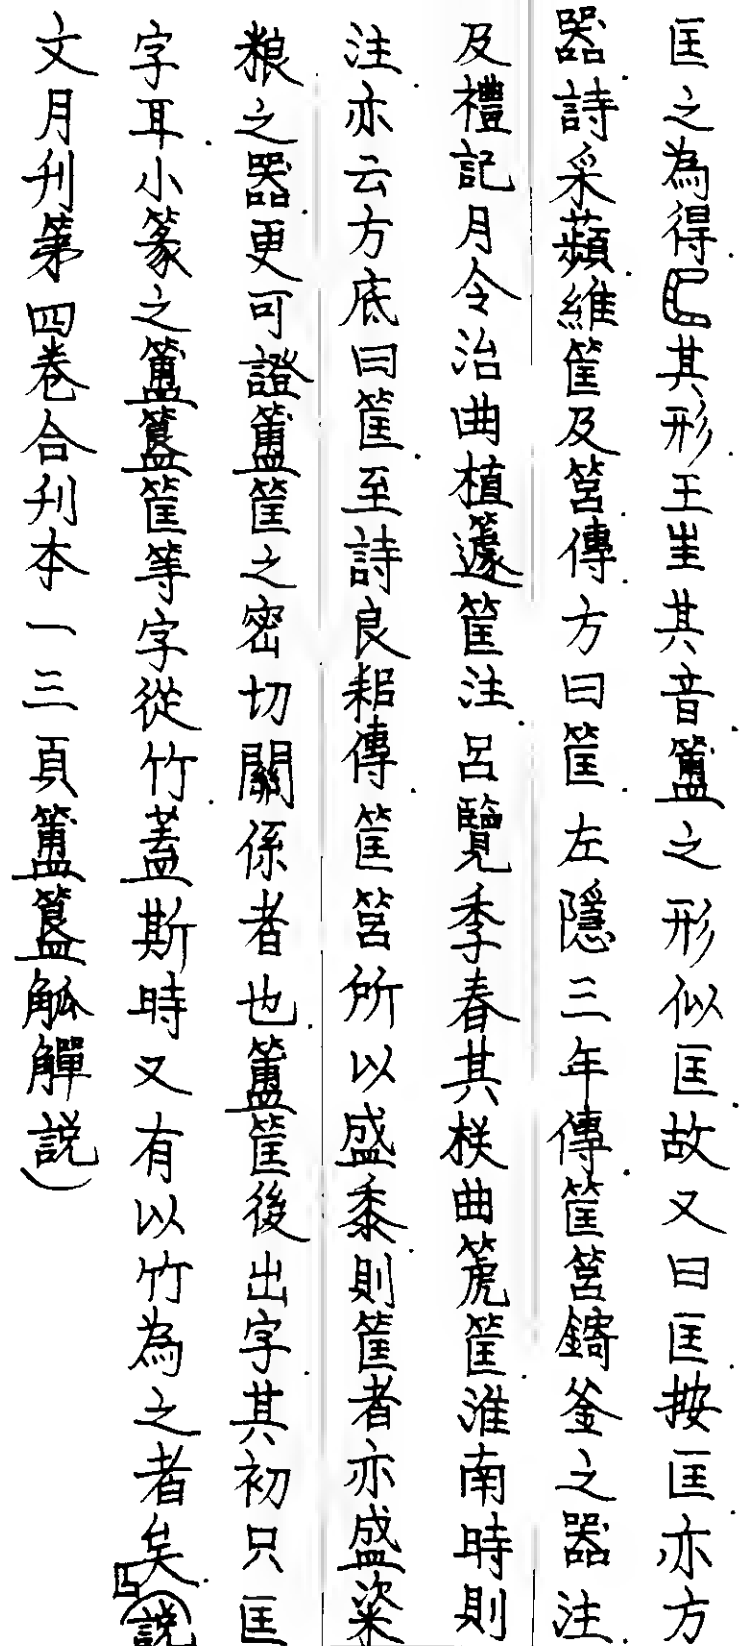 匡之為得匚其形王生其音簠之形似匡故又曰匡按匡亦方
器詩采蘋維筐及筥傳方曰筐左隱三年傳筐筥錡釜之器注
及禮記月令治曲植籧筐注呂覽季春其栚曲篪筐淮南時則
注亦云方底曰筐至詩良耜傳筐筥所以盛黍則筐者亦盛粢
粮之器更可證簠筐之密切關係者也簠筐後出字其初只匡
字耳小篆之簠簋筐等字從竹蓋斯時又有以竹為之者矣」(說
文月刊第四卷合刊本一三頁簠簋觚觶說)